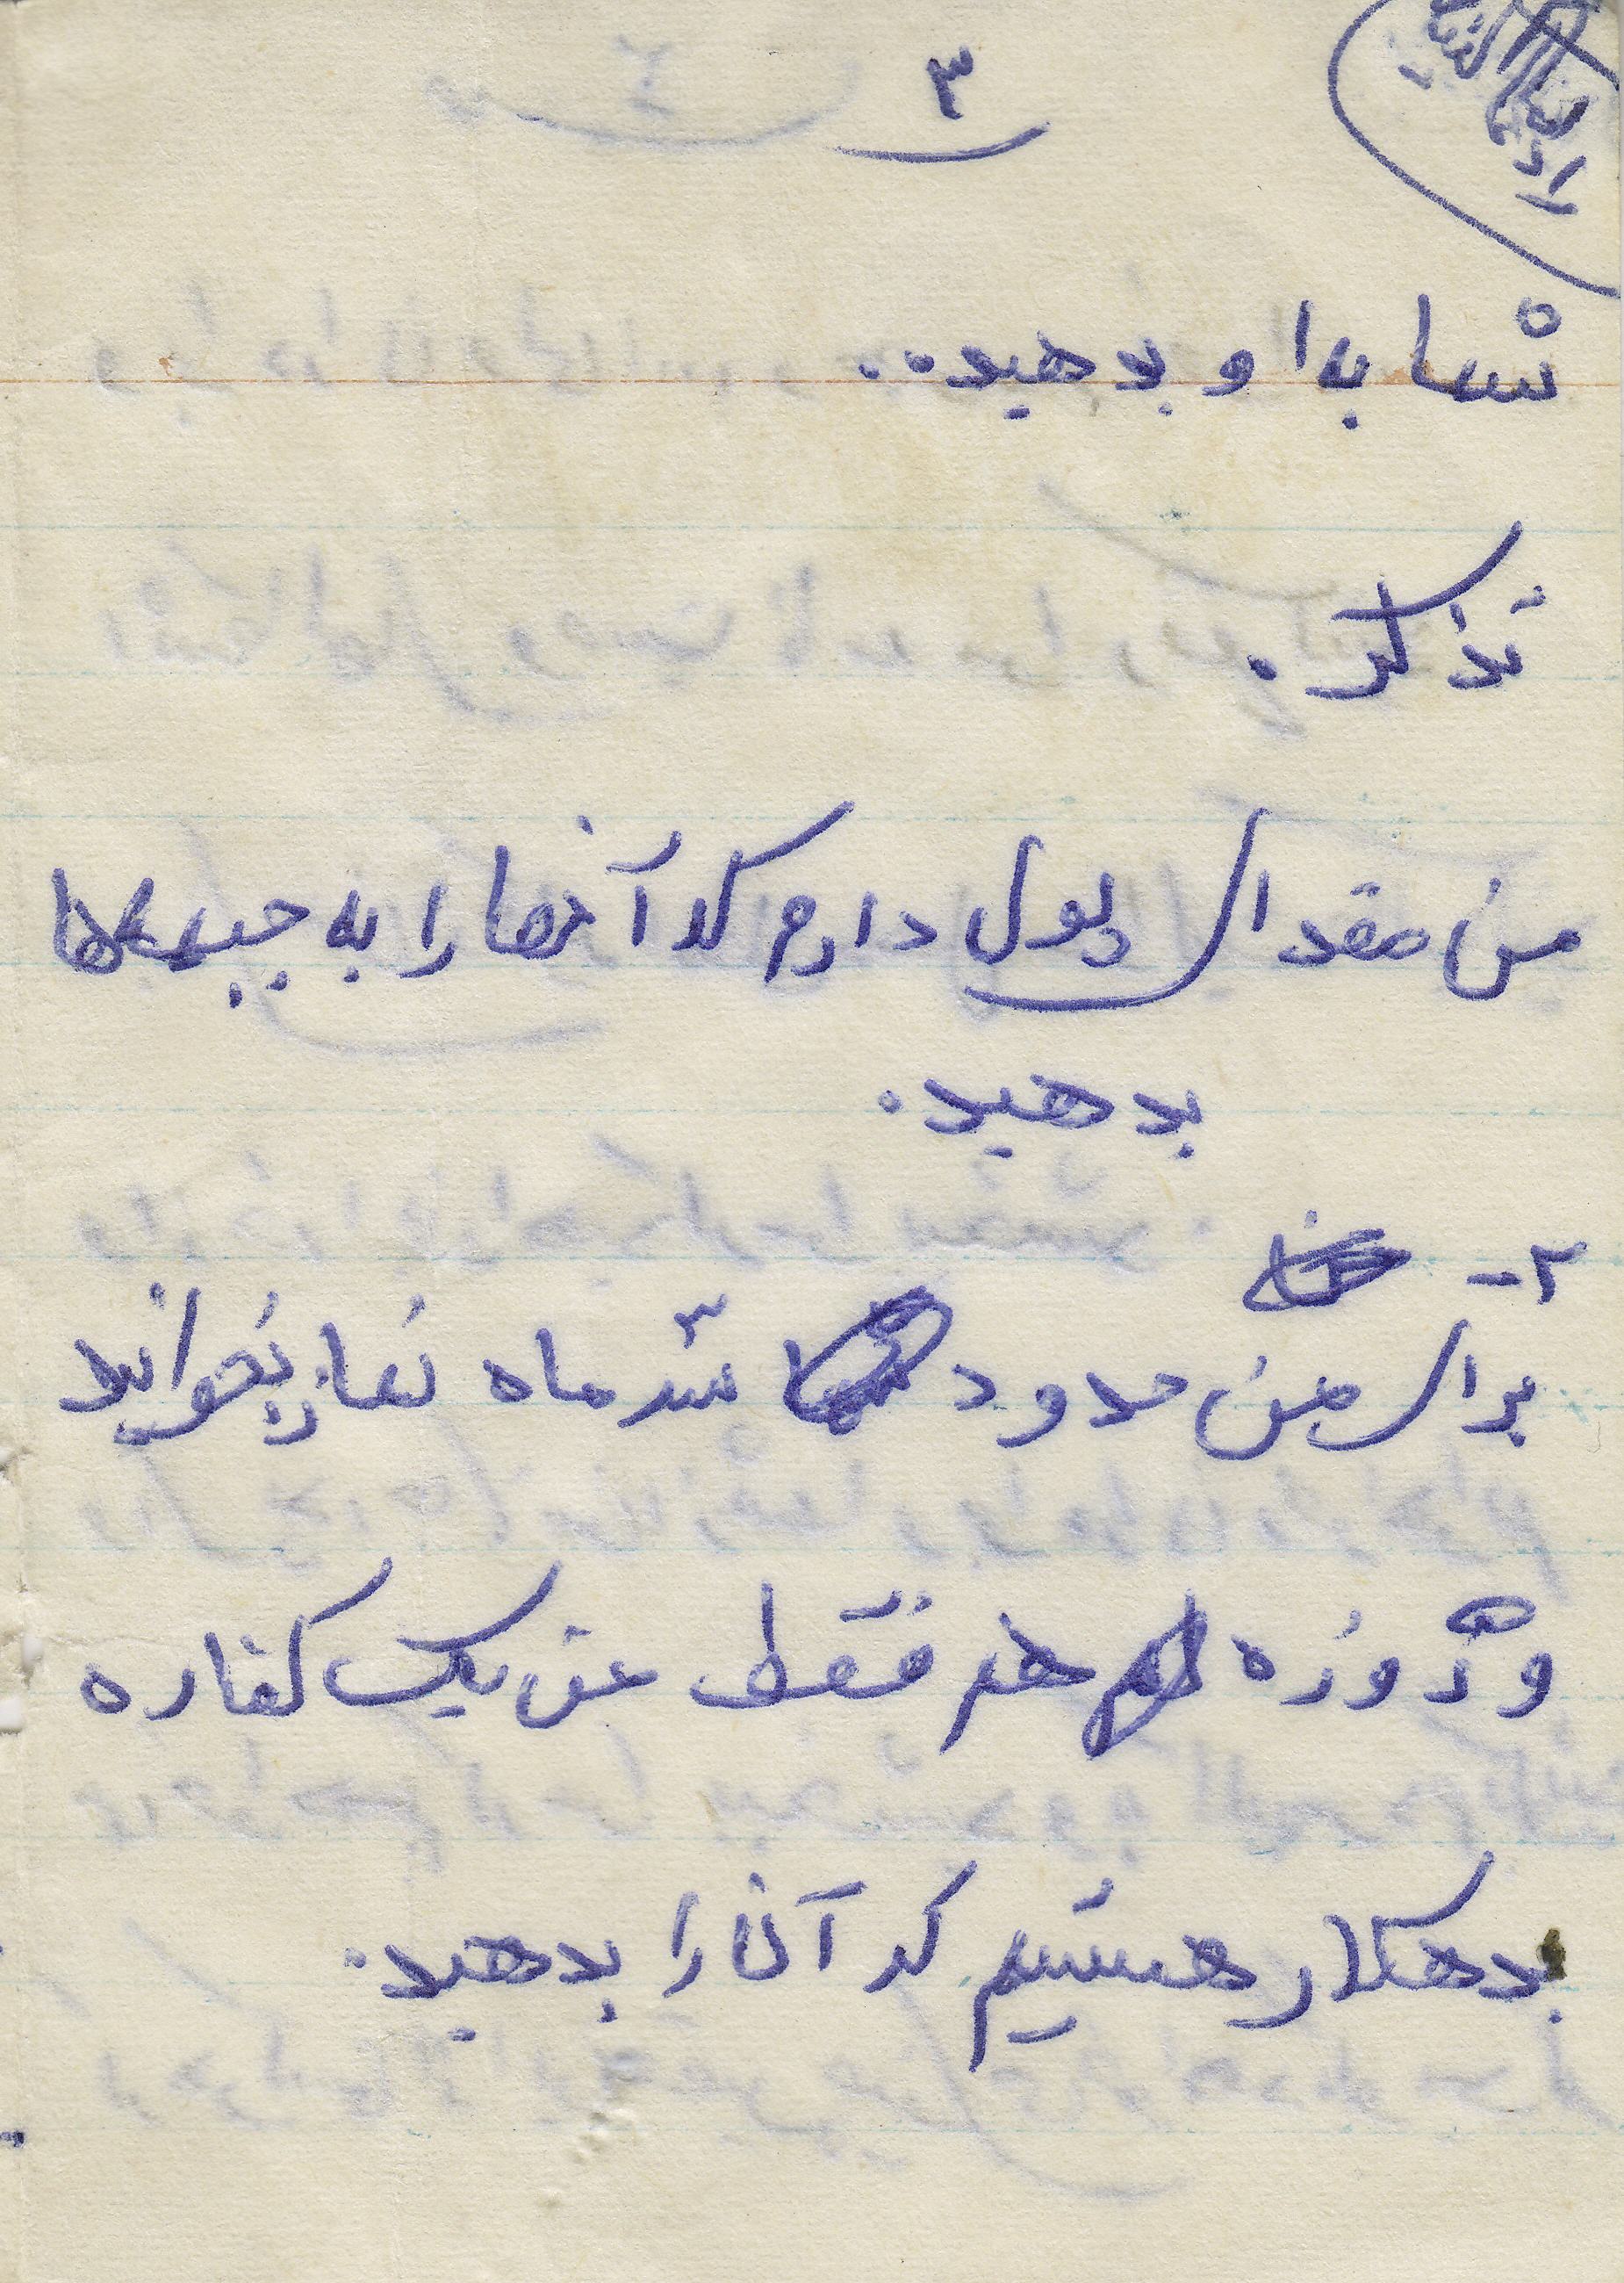 ۳
شما به او بدهید..
تذکر.
من مقداری پول دارم که آنها را به جبهه ها
بدهید.
۲-
برای من حدود سه ماه نماز بخوانید
و روزه هم فقط من یک کفاره
بدهکار هستم که آنرا بدهید.